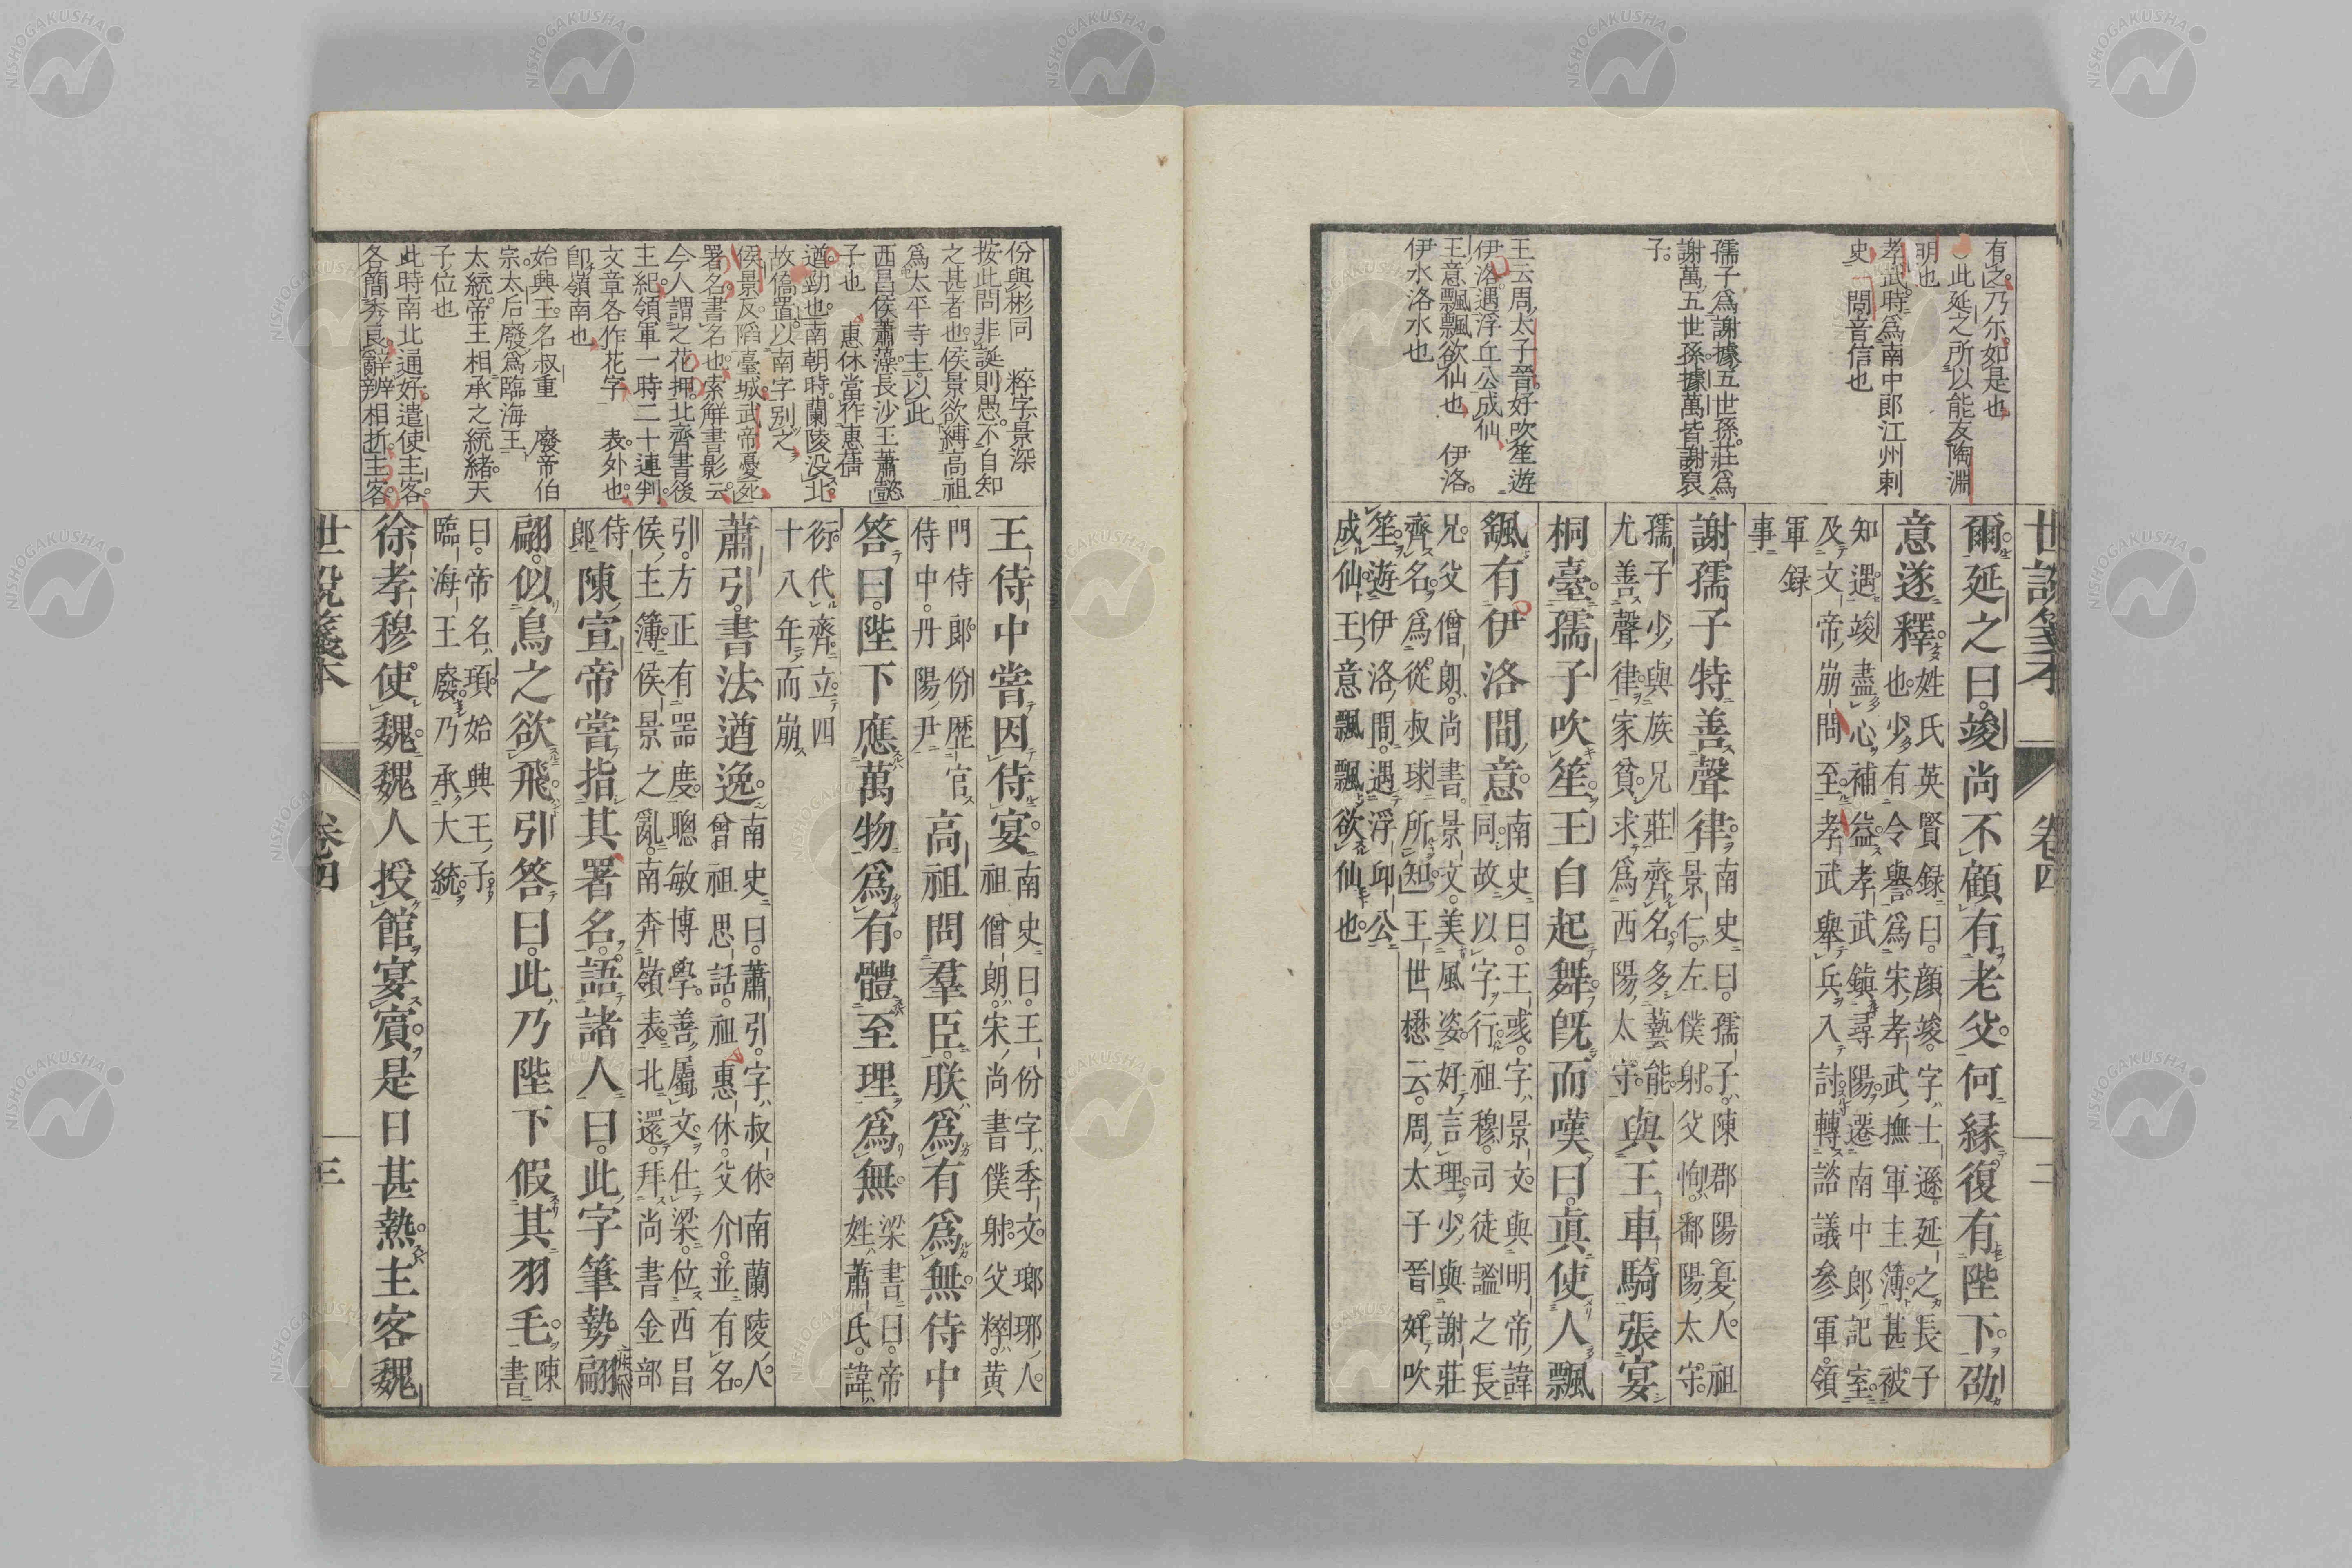 世説箋本
卷四
二
有之乃尓如是也
此延之所以能友陶淵
明也
孝武時爲南中郎江州剌
史 問音信也
孺子爲謝據五世孫莊爲
謝萬五世孫據萬皆謝裒
子
王云周太子晉好吹笙遊
伊洛遇浮丘公成仙
王意飄飄欲仙也 伊洛
伊水洛水也
爾延之曰竣尚不顧有老父何緣復有陛下劭
意遂釋
姓氏英賢録曰顔竣字士遜延之長子
也少有令譽爲宋孝武撫軍主簿甚被
知遇竣盡心補益孝武鎭尋陽遷南中郎記室
及文帝崩問至孝武舉兵入討轉諮議參軍領
軍録
事
謝孺子特善聲律
南史曰孺子陳郡陽夏人祖
景仁左僕射父恂鄱陽太守
孺子少與族兄莊齊名多藝能
尤善聲律家貧求爲西陽太守
與王車騎張宴
桐臺孺子吹笙王自起舞旣而嘆曰眞使人飄
飄有伊洛間意
南史曰王彧字景文與明帝諱
同故以字行祖穆司徒謐之長
兄父僧朗尚書景文美風姿好言理少與謝莊
齊名爲從叔球所知王世懋云周太子晉好吹
笙遊伊洛間遇浮邱公
成仙王意飄飄欲仙也
份與彬同 粹字景深
按此問非誕則愚不自知
之甚者也侯景欲縛高祖
爲太平寺主以此
西昌侯蕭藻長沙王蕭懿
子也 惠休當作惠蒨
遒勁也南朝時蘭陵没北
故僑置以南字別之
侯景反陷臺城武帝憂死
署名書名也索解書影云
今人謂之花押北齊書後
主紀領軍一時二十連判
文章各作花字 表外也
卽嶺南也
始興王名叔重 廢帝伯
宗太后廢爲臨海王
太統帝王相承之統緒天
子位也
此時南北通好遣使主客
各簡秀良辭辨相折主客
王侍中嘗因侍宴
南史曰王份字季文瑯琊人
祖僧朗宋尚書僕射父粹黄
門侍郎份歷官
侍中丹陽尹
高祖問羣臣朕爲有爲無侍中
答曰陛下應萬物爲有體至理爲無
梁書曰帝
姓蕭氏諱
衍代齊立四
十八年而崩
蕭引書法遒逸
南史曰蕭引字叔休南蘭陵人
曾祖思話祖惠休父介並有名
引方正有噐度聰敏博學善屬文仕梁位西昌
侯主簿侯景之亂南奔嶺表北還拜尚書金部
侍
郎
陳宣帝嘗指其署名語諸人曰此字筆勢翩
翩似鳥之欲飛引答曰此乃陛下假其羽毛
陳
書
曰帝名頊始興王子
臨海王廢乃承大統
徐孝穆使魏魏人授館宴賓是日甚熱主客魏
世説箋本
卷四
三